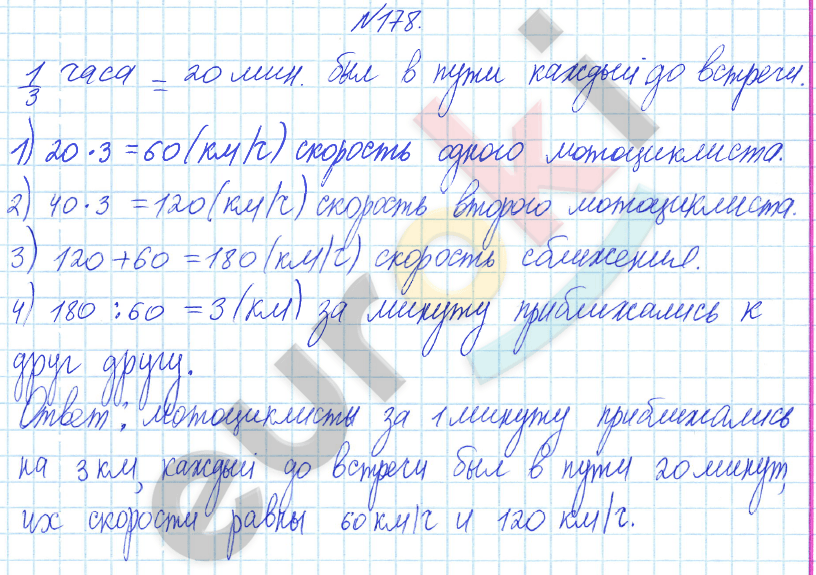 №178.
1/3 часа = 20 мин. был в пути каждый до встречи.
1) 20 · 3 = 60 (км/ч) скорость одного мотоциклиста.
2) 40 · 3 = 120 (км/ч) скорость второго мотоциклиста.
3) 120 + 60 = 180 (км/ч) скорость сближения.
4) 180 : 60 = 3 (км) за минуту приближались к
друг другу.
Ответ: мотоциклисты за 1 минуту приближались
на 3 км, каждый до встречи был в пути 20 минут,
их скорости равны 60 км/ч и 120 км/ч.
euroki